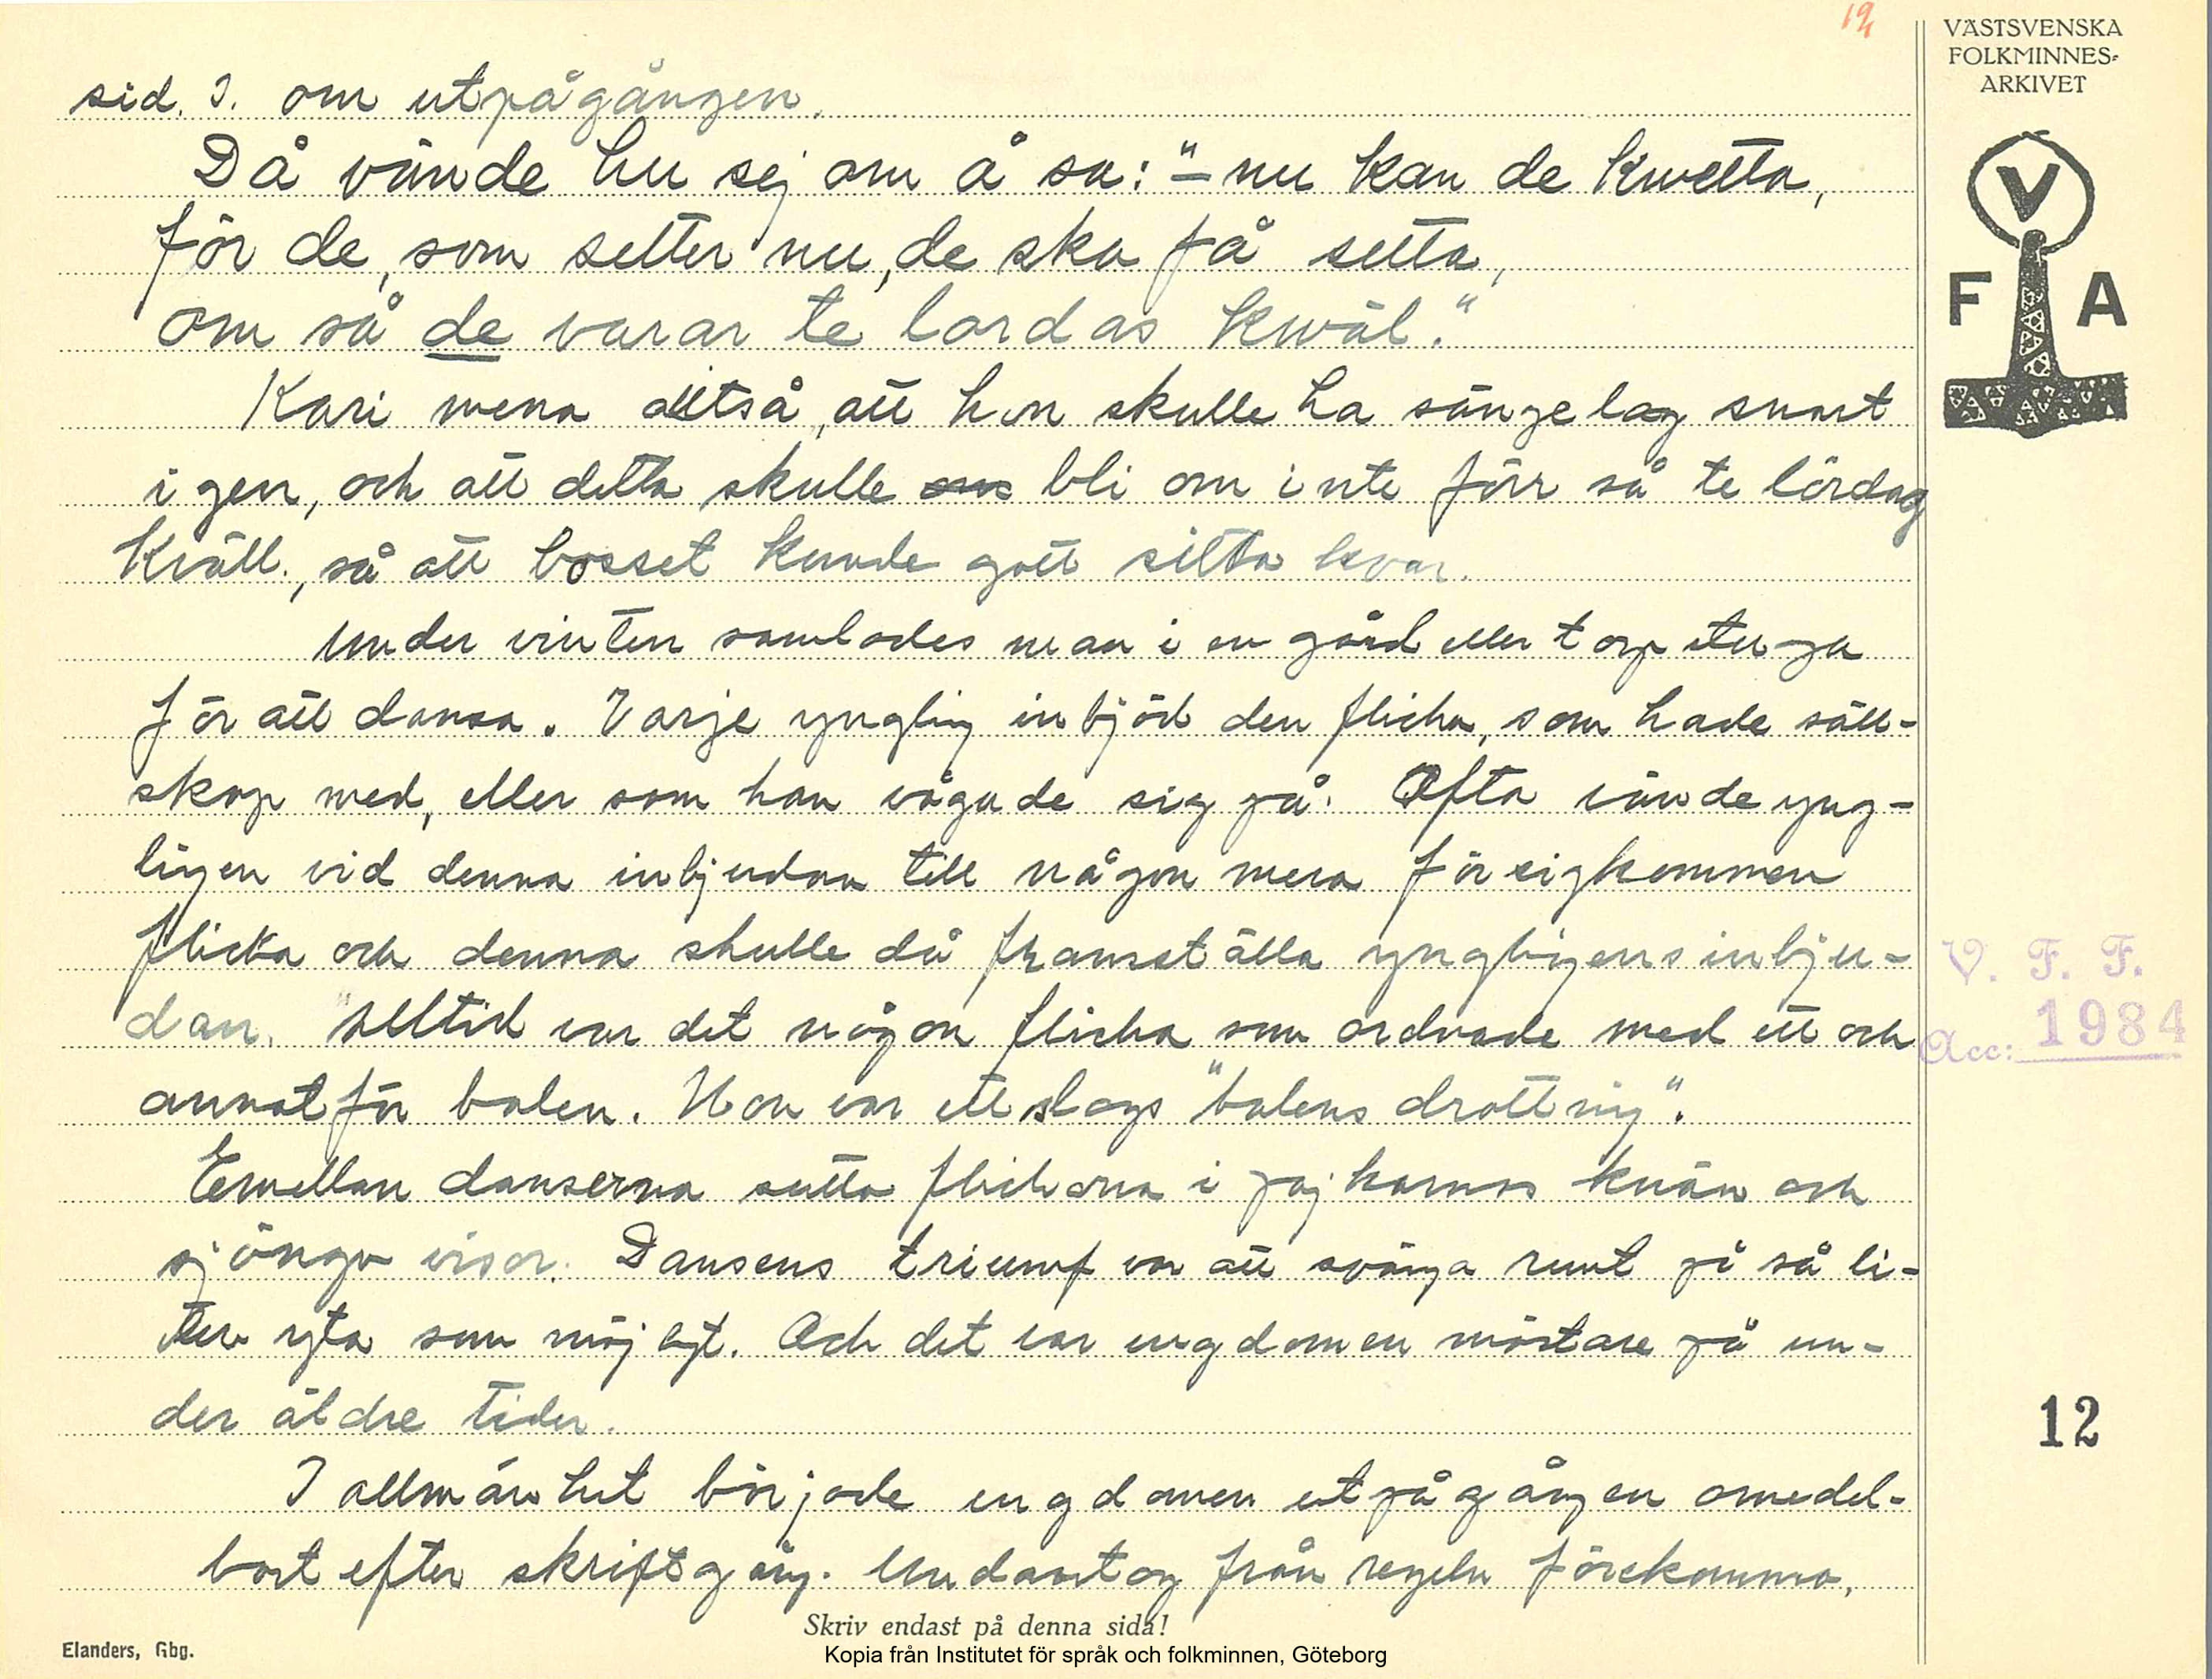 12
VÄSTSVENSKA
FOLKMINNES-
ARKIVET
V
F A
sid. 3. om utpågången.
Då vände hu sej om å sa: "– nu kan de kwetta,
för de, som setter nu, de ska få setta,
om så de varar te lordas kwäl."
Kari mena alltså, att hon skulle ha sängelag snart
igen, och att detta skulle bli om inte förr så te lördag
kväll., så att bosset kunde gott sitta kvar.
Under vintern samlades man i en gård eller torpstuga
för att dansa. Varje yngling inbjöd den flicka, som hade säll-
skap med, eller som han vågade sig på. Ofta vände yng-
lingen vid denna inbjudan till någon mera försigkommen
flicka och denna skulle då framställa ynglingens inbju-
dan. Alltid var det någon flicka som ordnade med ett och
annat för balen. Hon var ett slags "balens drottning".
Emellan danserna sutto flickorna i pojkarnas knän och
sjöngo visor. Dansens triumf var att svänga runt på så li-
ten yta som möjligt. Och det var ungdomen mästare på un-
der äldre tider.
I allmänhet började ungdomen utpågången omedel-
bart efter skriftgång. Undantag från regeln förekommo,
V. F. F.
Acc: 1984
12
Skriv endast på denna sida!
Elanders, Gbg.
Kopia från Institutet för språk och folkminnen, Göteborg